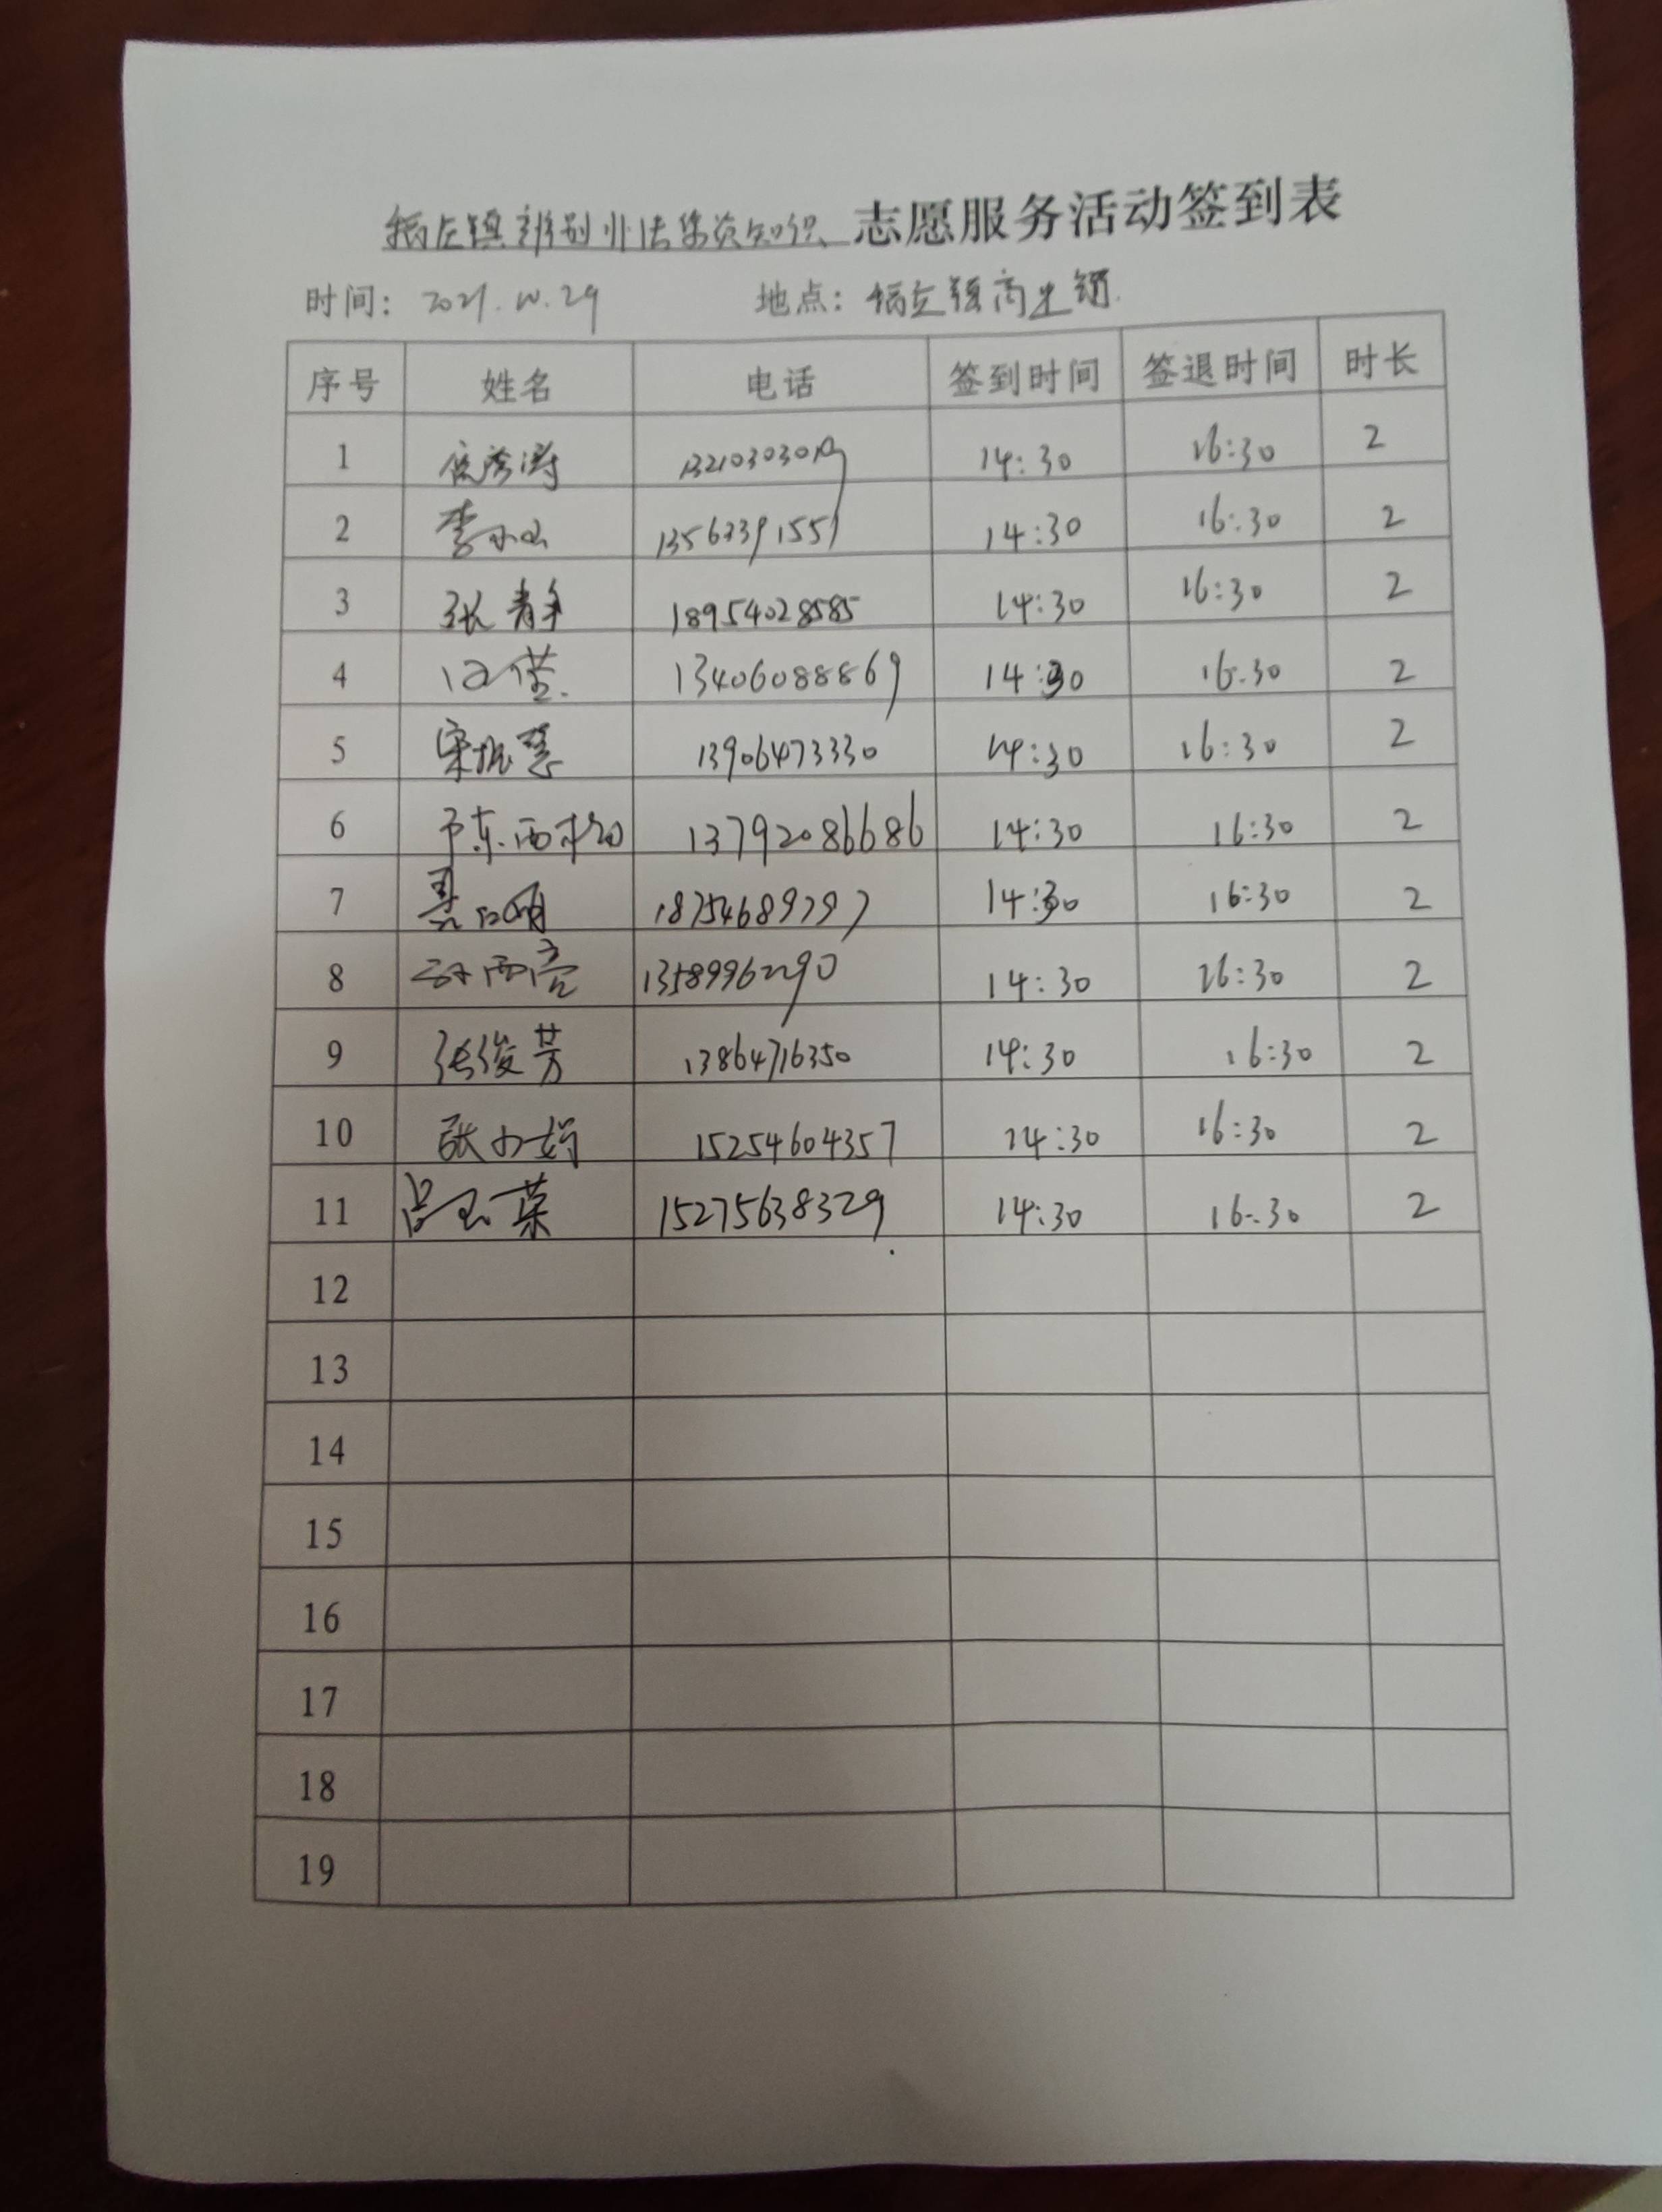 辨别非法集资知识 志愿服务活动签到表
时间: 2021.10.29 地点:
序号 姓名 电话 签到时间 签退时间 时长
1 14:30 16:30 2
2 14:30 16:30 2
3 张静 18954028585 14:30 16:30 2
4 13406088869 14:30 16:30 2
5 宋振慧 13906473330 14:30 16:30 2
6 13792086686 14:30 16:30 2
7 14:30 16:30 2
8 14:30 16:30 2
9 张俊芳 13864716350 14:30 16:30 2
10 张小娟 15254604357 14:30 16:30 2
11 吕玉荣 15275638329 14:30 16:30 2
12
13
14
15
16
17
18
19